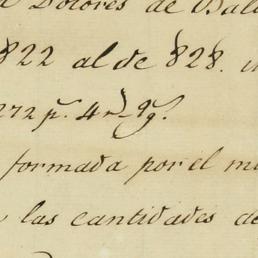 Dolores de Bal
822 al de 828.
272 p.s 4 r.s 9 g.s
formada por el m
las cantidades de